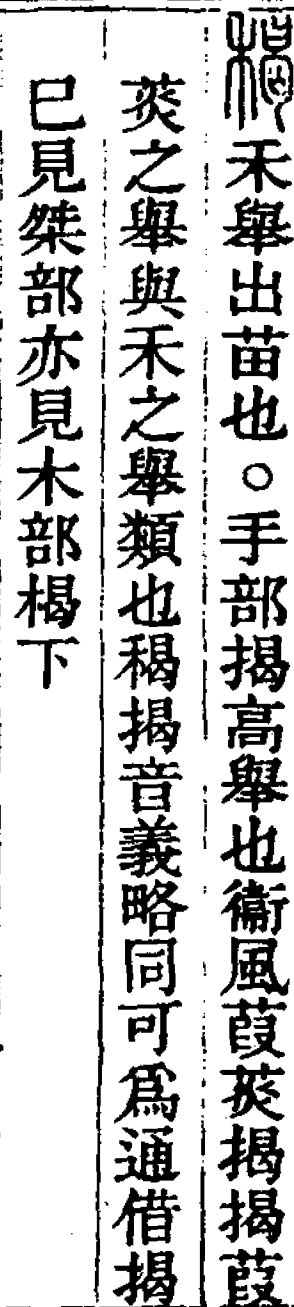 䅥禾舉出苗也○手部揭高舉也衞風葭菼揭揭葭
菼之舉與禾之舉類也䅥揭音義略同可爲通借揭
巳見桀部亦見木部楬下